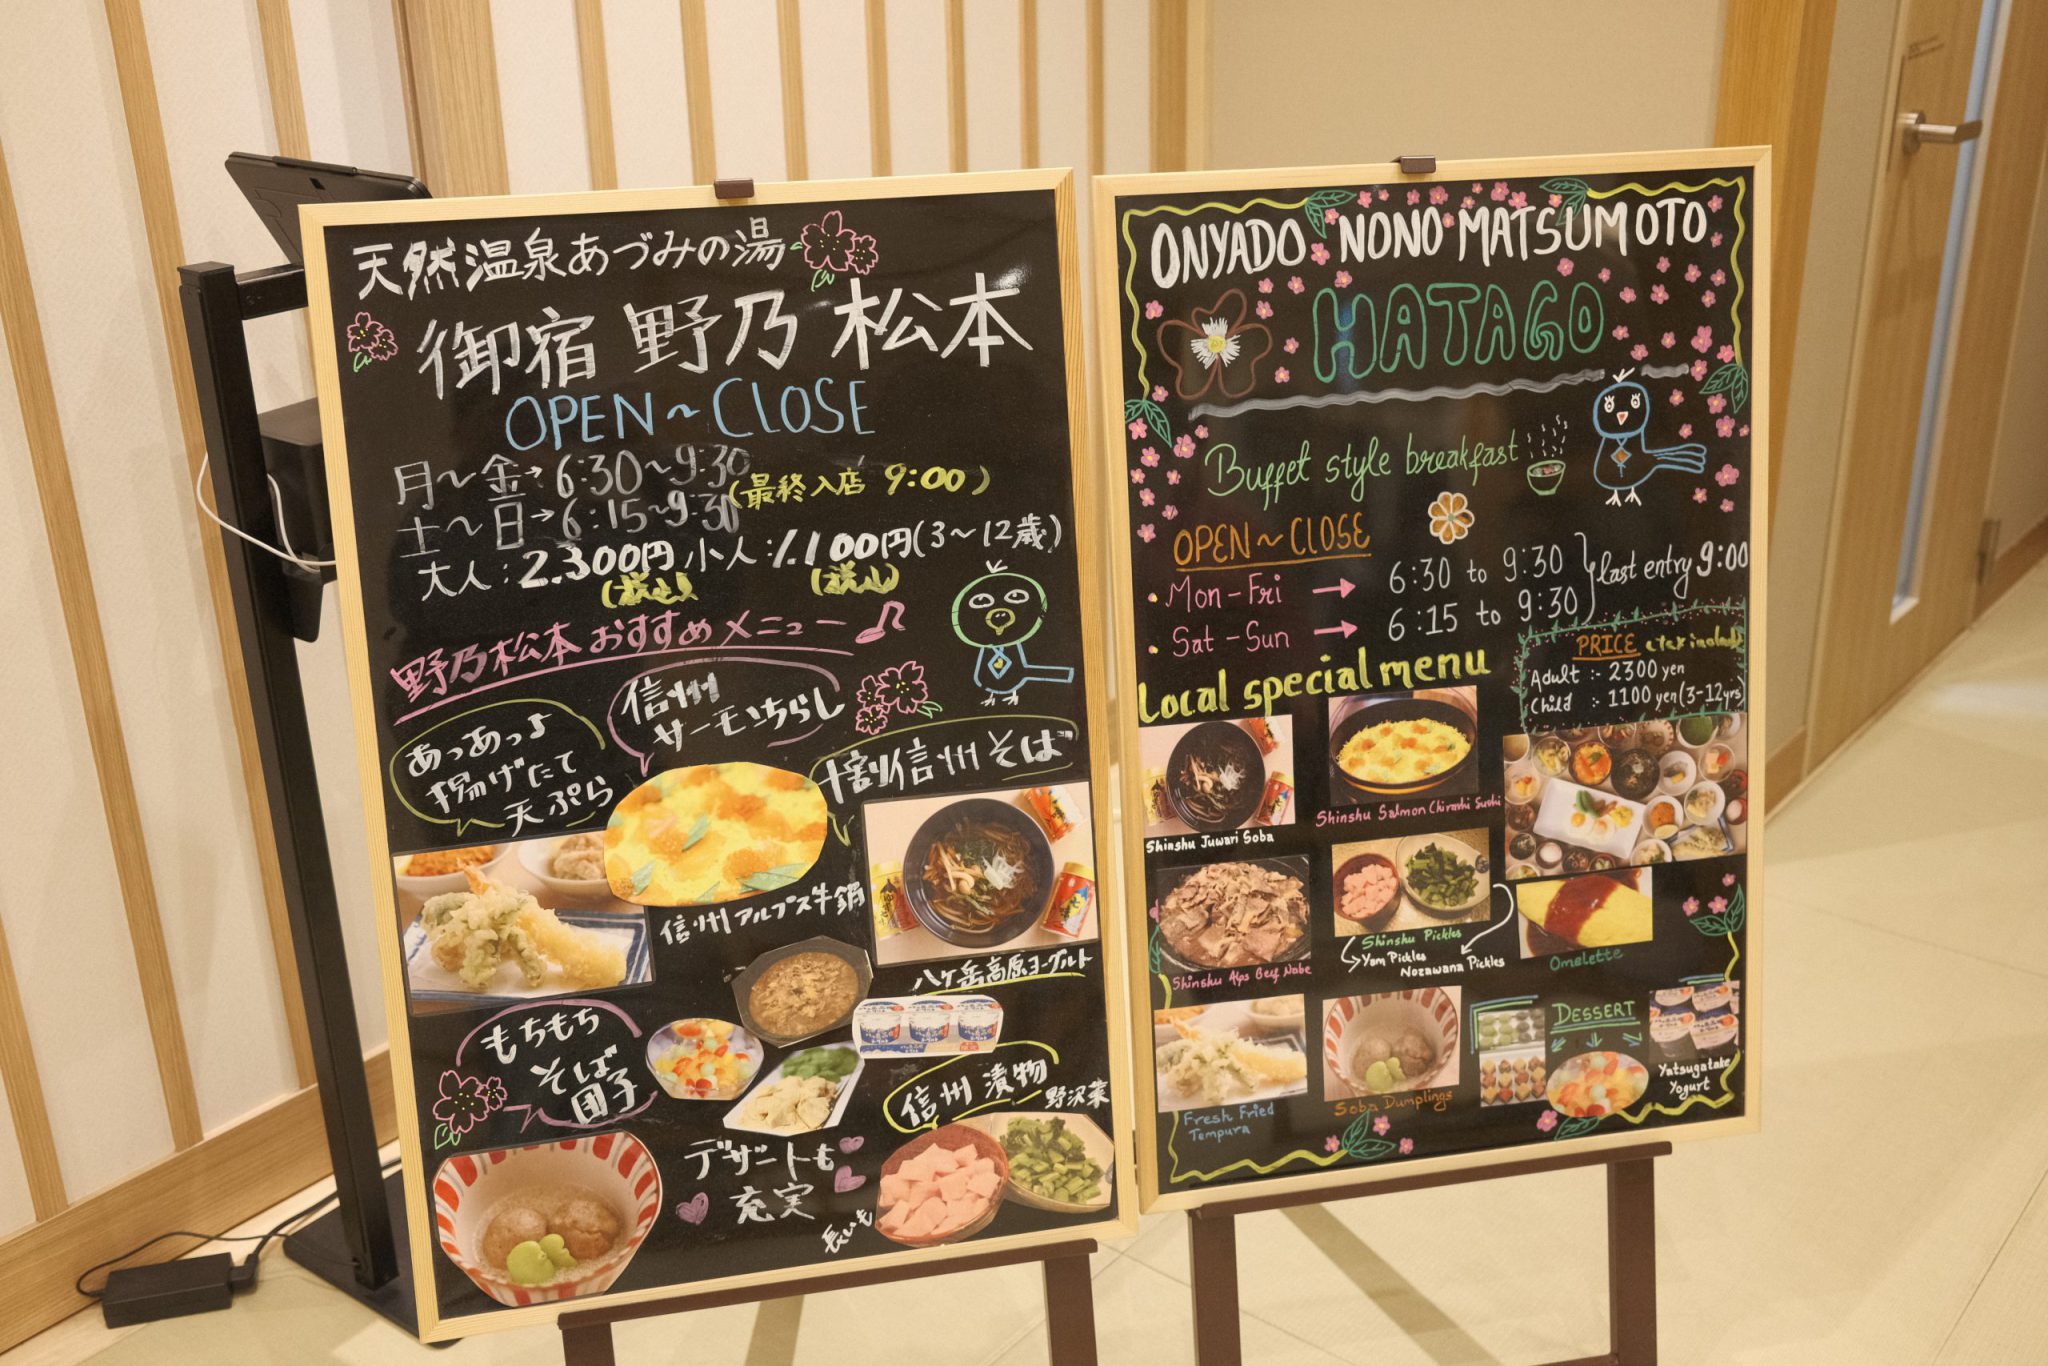 天然温泉あづみの湯
御宿 野乃 松本
OPEN~CLOSE
月~金→6:30~9:30
土~日→6:15~9:30
(最終入店 9:00)
大人:2.300円 小人:1.100円(3~12歳)
(税込) (税込)
野乃松本おすすめメニュー♪
あっあっよ
揚げたて
天ぷら
信州
サーモンちらし
十割信州そば
信州アルプス牛鍋
八ヶ岳高原ヨーグルト
もちもち
そば
団子
信州 漬物
野沢菜
デザートも
充実
長いも
ONYADO NONO MATSUMOTO
HATAGO
Buffet style breakfast
OPEN~CLOSE
• Mon-Fri → 6:30 to 9:30
• Sat-Sun → 6:15 to 9:30
last entry 9:00
Local special menu
PRICE
Adult :- 2300 yen
Child : 1100 yen (3-12yrs)
Shinshu Juwari Soba
Shinshu Salmon Chirashi Sushi
Shinshu Alps Beef Nabe
Shinshu Pickles
Yam Pickles
Nozawana Pickles
Omelette
Fresh Fried
Tempura
Soba Dumplings
DESSERT
Yatsugatake
Yogurt